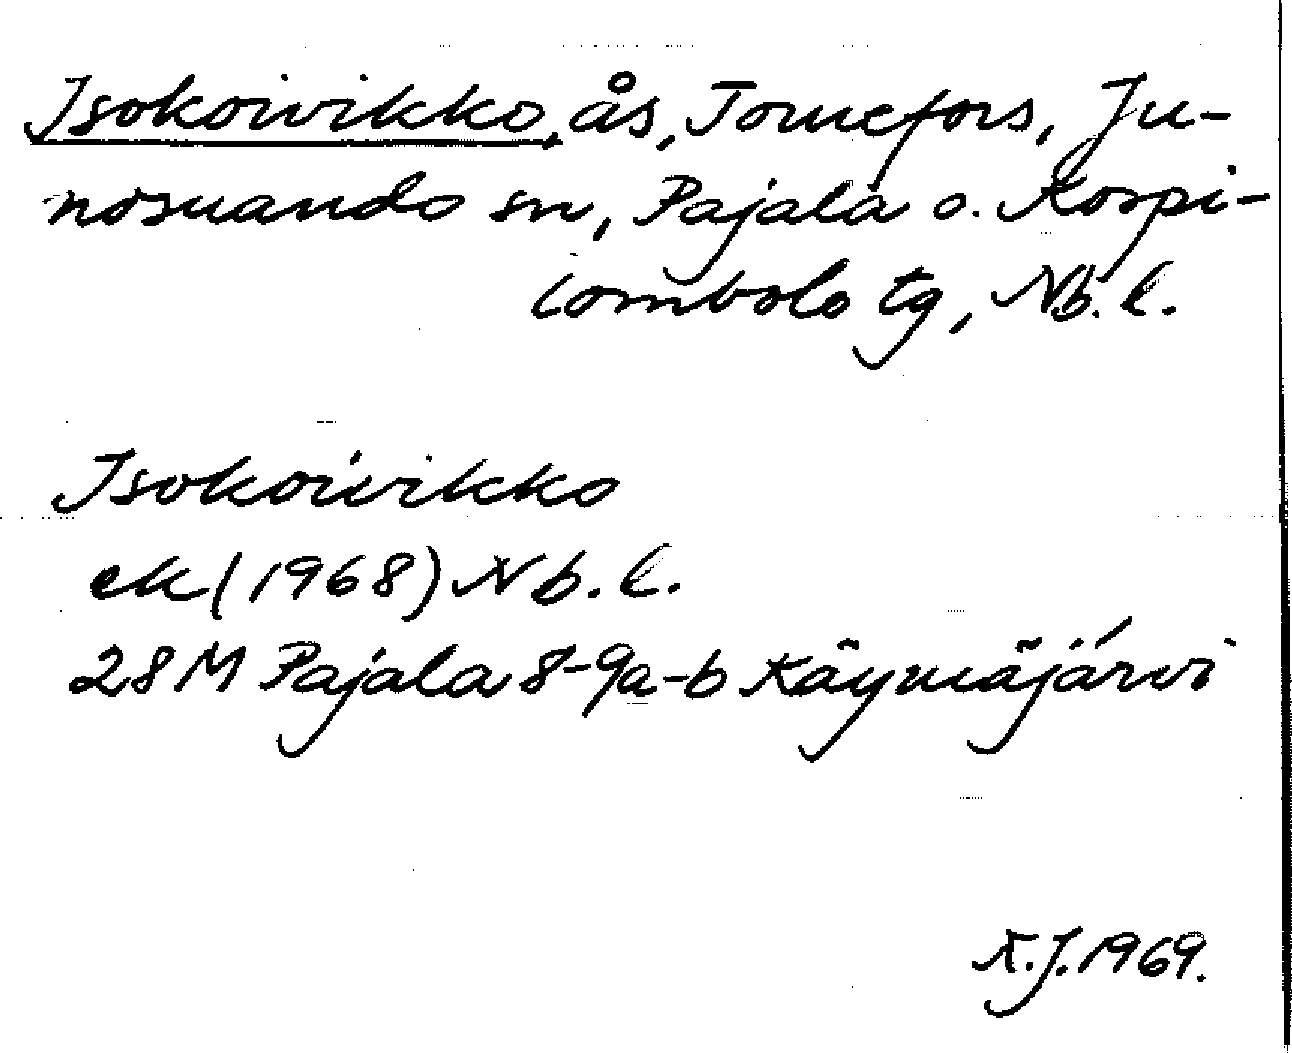 Isokoivikko, ås, Tornefors, Ju-
nosuando sn, Pajala o. Korpi-
lombolo tg, Nb. l.
Isokoivikko
ek (1968) Nb. l.
28 M Pajala 8-9a-b Käymäjärvi
K.J. 1969.